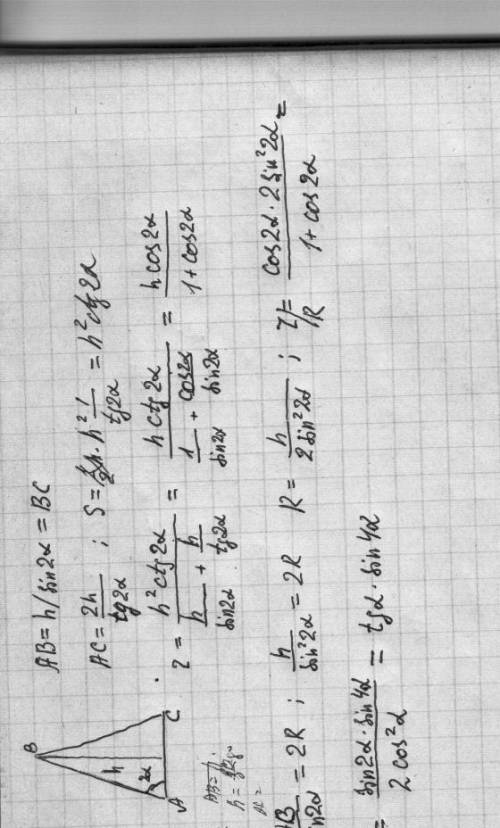 B
h
2α
A C
AB = h/sin2α = BC
AC = 2h/tg2α ; S = 1/2 h · h² 1/tg2α = h² ctg2α
r = h² ctg2α / (h/sin2α + h/tg2α) = h ctg2α / (1/sin2α + cos2α/sin2α) = h cos2α / (1 + cos2α)
AB/sin2α = 2R ; h/sin²2α = 2R R = h/(2 sin²2α) ; r/R = cos2α · 2 sin²2α / (1 + cos2α) =
= sin2α · sin4α / (2 cos²α) = tgα · sin4α